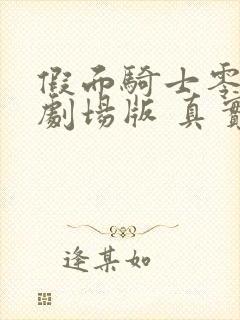 假面騎士零
劇場版 真實
逢某如